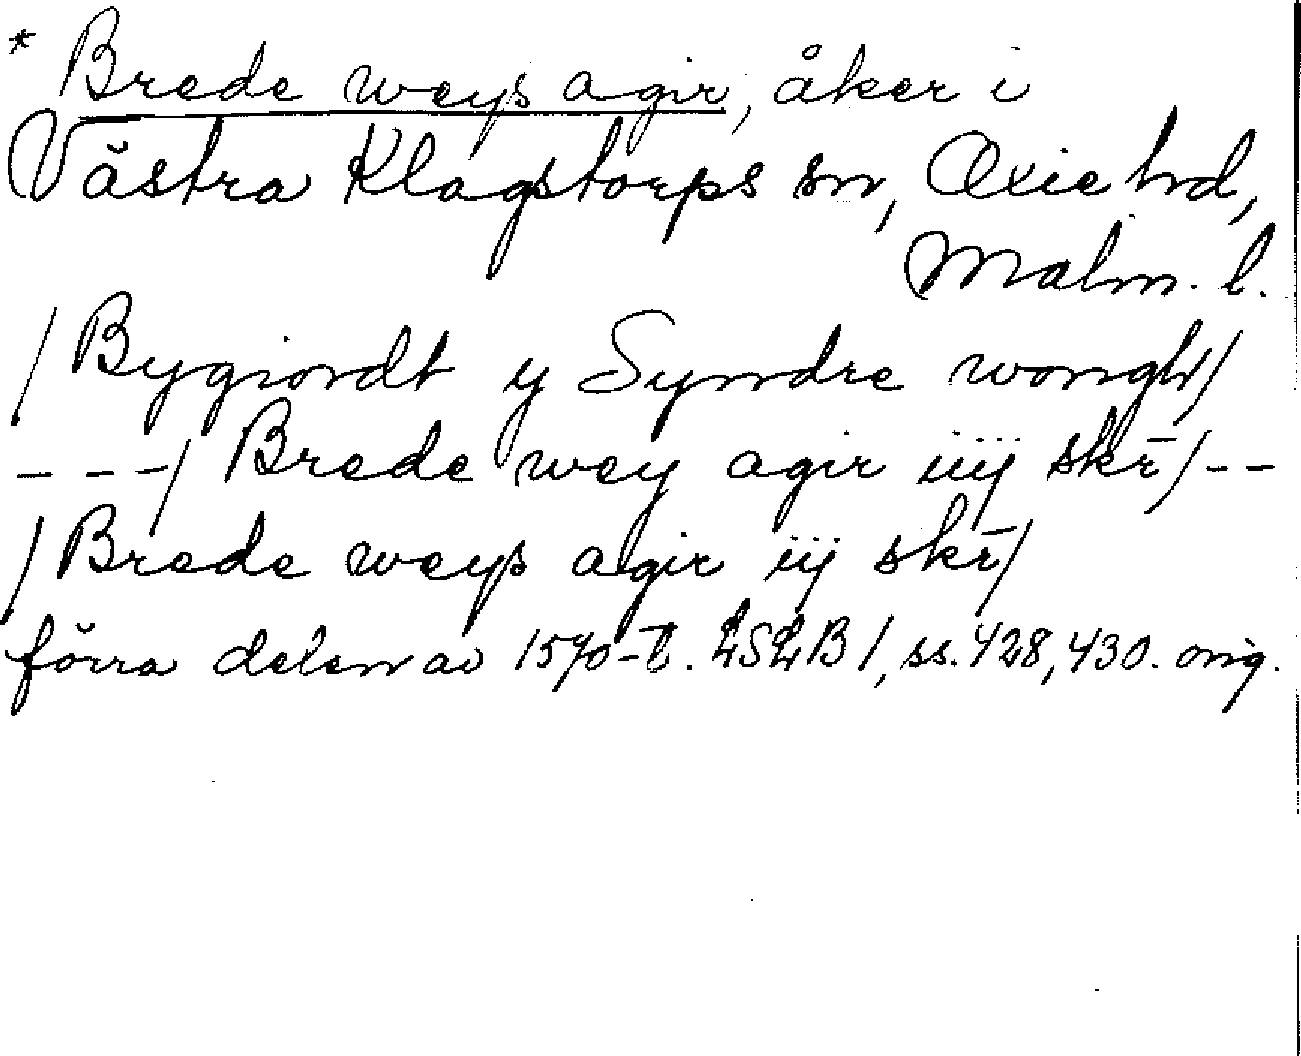 * Brede weys agir, åker i
Västra Klagstorps sn, Oxie hd,
Malm. l.
/ Bygiordt y Syndre wongh/
---/ Brede wey agir iiij skr̄/--
/ Brede weys agir iij skr̄/
förra delen av 1570-t. LSLB 1, ss. 428, 430. orig.